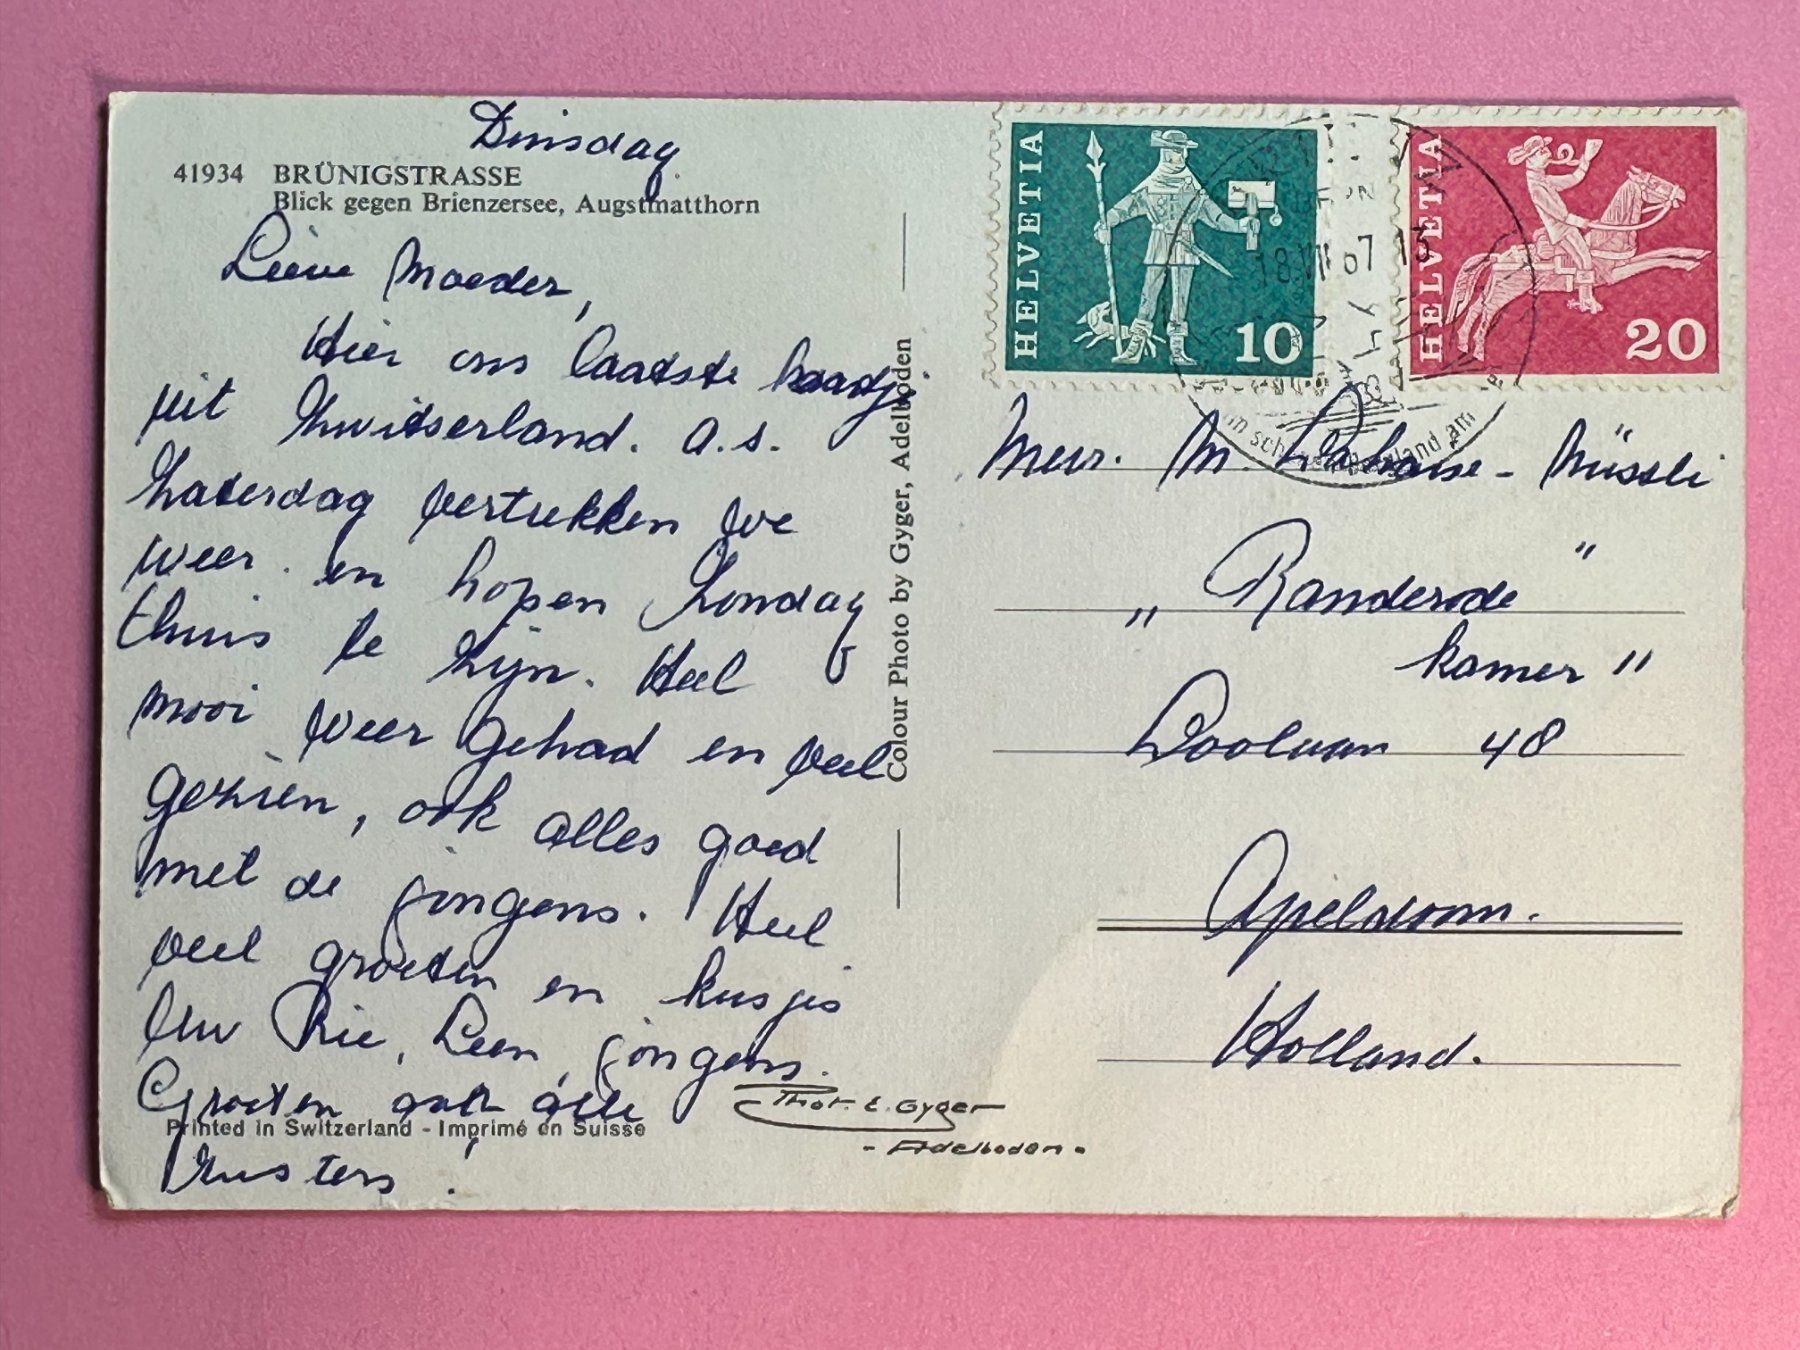 Dinsdag
41934 BRÜNIGSTRASSE
Blick gegen Brienzersee, Augstmatthorn
Lieve Moeder,
Hier ons laatste kaartje
uit Zwitserland. a.s.
Zaterdag vertrekken we
weer en hopen Zondag
thuis te zijn. Heel
mooi weer gehad en veel
gezien, ook alles goed
met de jongens. Heel
veel groeten en kusjes
Uw Rie, Leen, jongens.
Groeten ook alle
zusters!
Printed in Switzerland - Imprimé en Suisse
Colour Photo by Gyger, Adelboden
Phot. E. Gyger
- Adelboden -
HELVETIA
10
HELVETIA
20
18.VII.67 13
am
Mevr. M. - Müssli
„Randerode"
kamer"
Loolaan 48
Apeldoorn.
Holland.